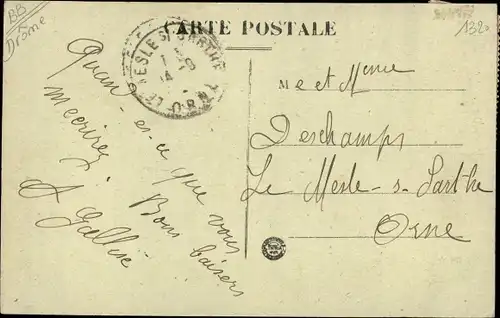 BB
Drôme
CARTE POSTALE
1320
LE MESLE S. SARTHE
ORNE
Quan est-ce que vous
mecrirez Bons baisers
A Gallise
M e et Meme
Deschamps
Le Mesle-s-Sarthe
Orne